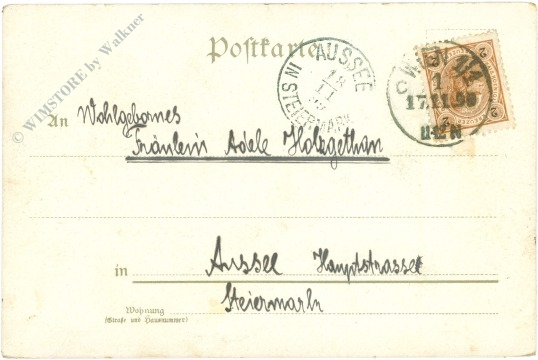 © WIMSTORE by Walkner
Postkarte
AUSSEE
18
11
IN STEIERMARK
WIEN 1/1
C 1
17.11.98
2
2
An Wohlgebornes
Fräulein Adele Holzgethan
in Aussee Hauptstrasse
Steiermark
Wohnung
(Straße und Hausnummer)